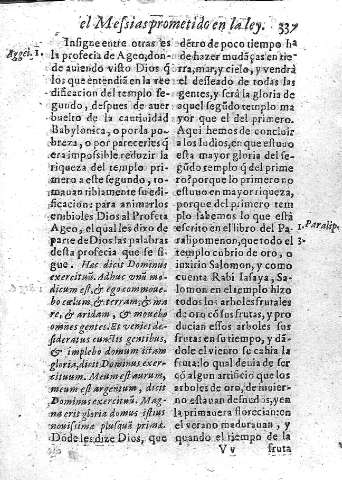 el Messias prometido en la ley. 337
Aggei. 1.
Insigne entre otras es
la profecia de Ageo, don-
de auiendo visto Dios q̃
los que entendiã en la ree
dificacion del templo se-
gundo, despues de auer
buelto de la cautiuidad
Babylonica, o por la po-
breza, o por parecerles q̃
era impossible reduzir la
riqueza del templo pri-
mero a este segundo, to-
mauan tibiamente su edi-
ficacion: para animarlos
embioles Dios al Profeta
Ageo, el qual les dixo de
parte de Dios las palabras
desta profecia que se si-
gue. Hæc dicit Dominus
exercituũ. Adhuc vnũ mo-
dicum est, & ego commoue-
bo cælum, & terram; & ma
re, & aridam, & mouebo
omnes gentes. Et veniet de-
sideratus cunctis gentibus,
& implebo domum istam
gloria, dicit Dominus exer-
cituum. Meum est aurum,
meum est argentum, dicit
Dominus exercituũ. Mag-
na erit gloria domus istius
nouissimæ plusquã primæ.
Dõde les dize Dios, que
dẽtro de poco tiempo ha
de hazer mudãças en tie-
rra, mar, y cielo, y vendrá
el desseado de todas las
gentes, y será la gloria de
aquel segũdo templo ma
yor que el del primero.
Aqui hemos de concluir
a los Iudios, en que estuuo
esta mayor gloria del se-
gũdo templo q̃ del prime
ro? porque lo primero no
estuuo en mayor riqueza,
porque del primero tem
plo sabemos lo que está
escrito en el libro del Pa-
ralipomenon, que todo el
templo cubrio de oro, o
tuxirio Salomon, y como
cuenta Rabi Iasaya, Sa-
lomon en el templo hizo
todos los arboles frutales
de oro cõ sus frutas, y pro
ducian estos arboles sus
frutas en su tiempo, y dã-
dole el viento se cahía la
fruta: lo qual deuia de ser
cõ algun artificio que los
arboles de oro, de inuier-
no estauan desnudos, y en
la primauera florecian: en
el verano madurauan, y
quando el tiempo de la
1. Paralip.
3.
V v fruta